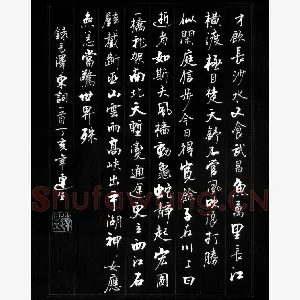 才飲長沙水又食武昌魚萬里長江
橫渡極目楚天舒不管風吹浪打勝
似閑庭信步今日得寬餘子在川上曰
逝者如斯夫風檣動龜蛇靜起宏圖
一橋飛架南北天塹變通途更立西江石
壁截斷巫山雲雨高峽出平湖神女應
無恙當驚世界殊
錄毛澤東詞一首丁亥年
Shufawang.CN